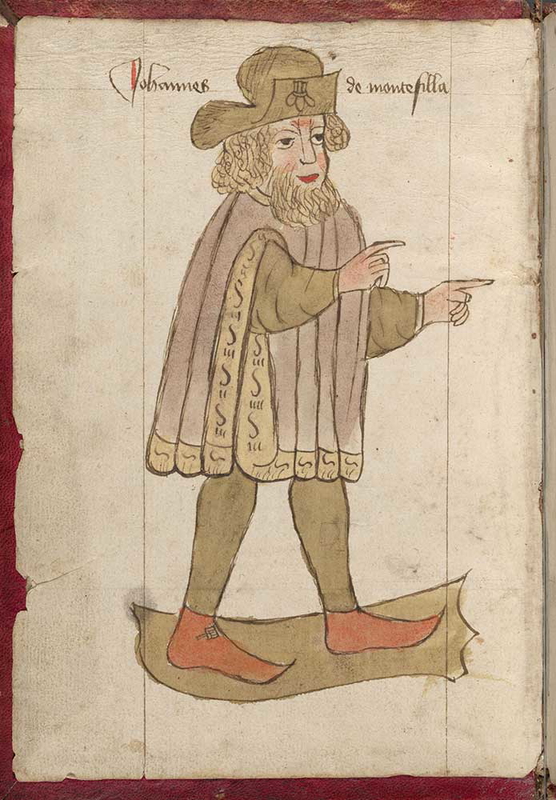 Johannes de montefilla